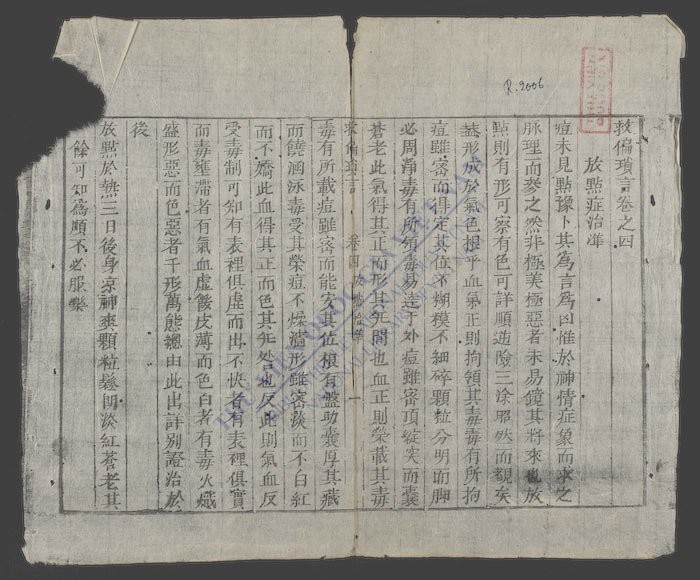 R.2006
救偏瑣言卷之四
放點症治準
痘未見點豫卜其爲言爲凶惟於神情症象而求之
脉理而叅之然非極美極惡者未易鏡其將來也放
點則有形可察有色可詳順逆險三塗照然而覩矣
葢形成於氣色根乎血氣正則拘領其毒毒有所拘
痘雖密而得定其位不糊模不細碎顆粒分明而脚
必周淨毒有所領毒易達于外痘雖密頂綻突而囊
蒼老此氣得其正而形其無間也血正則榮載其毒
救偏瑣言 卷四 放點治準 一
毒有所載痘雖密而能安其位根有盤助囊厚其藏
而饒涵泳毒受其榮痘不燥澁形雖密淡而不白紅
而不嬌此血得其正而色其無咎也反此則氣血反
受毒制可知有表裡俱虛而出不快者有表裡俱實
而毒壅滯者有氣血虛餒皮薄而色白者有毒火熾
盛形惡而色惡者千形萬態總由此出詳別證治於
後
放點於熱三日後身凉神爽顆粒鬆朗淡紅蒼老其
餘可知爲順不必服藥